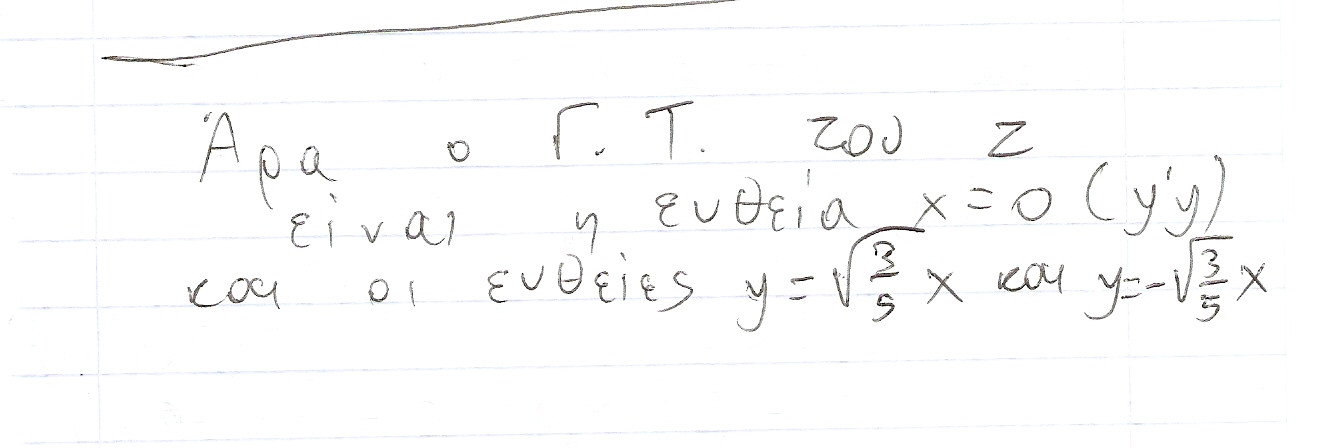 Άρα ο Γ.Τ. του z
είναι η ευθεία x=0 (y'y)
και οι ευθείες y=√(3/5) x και y=-√(3/5) x